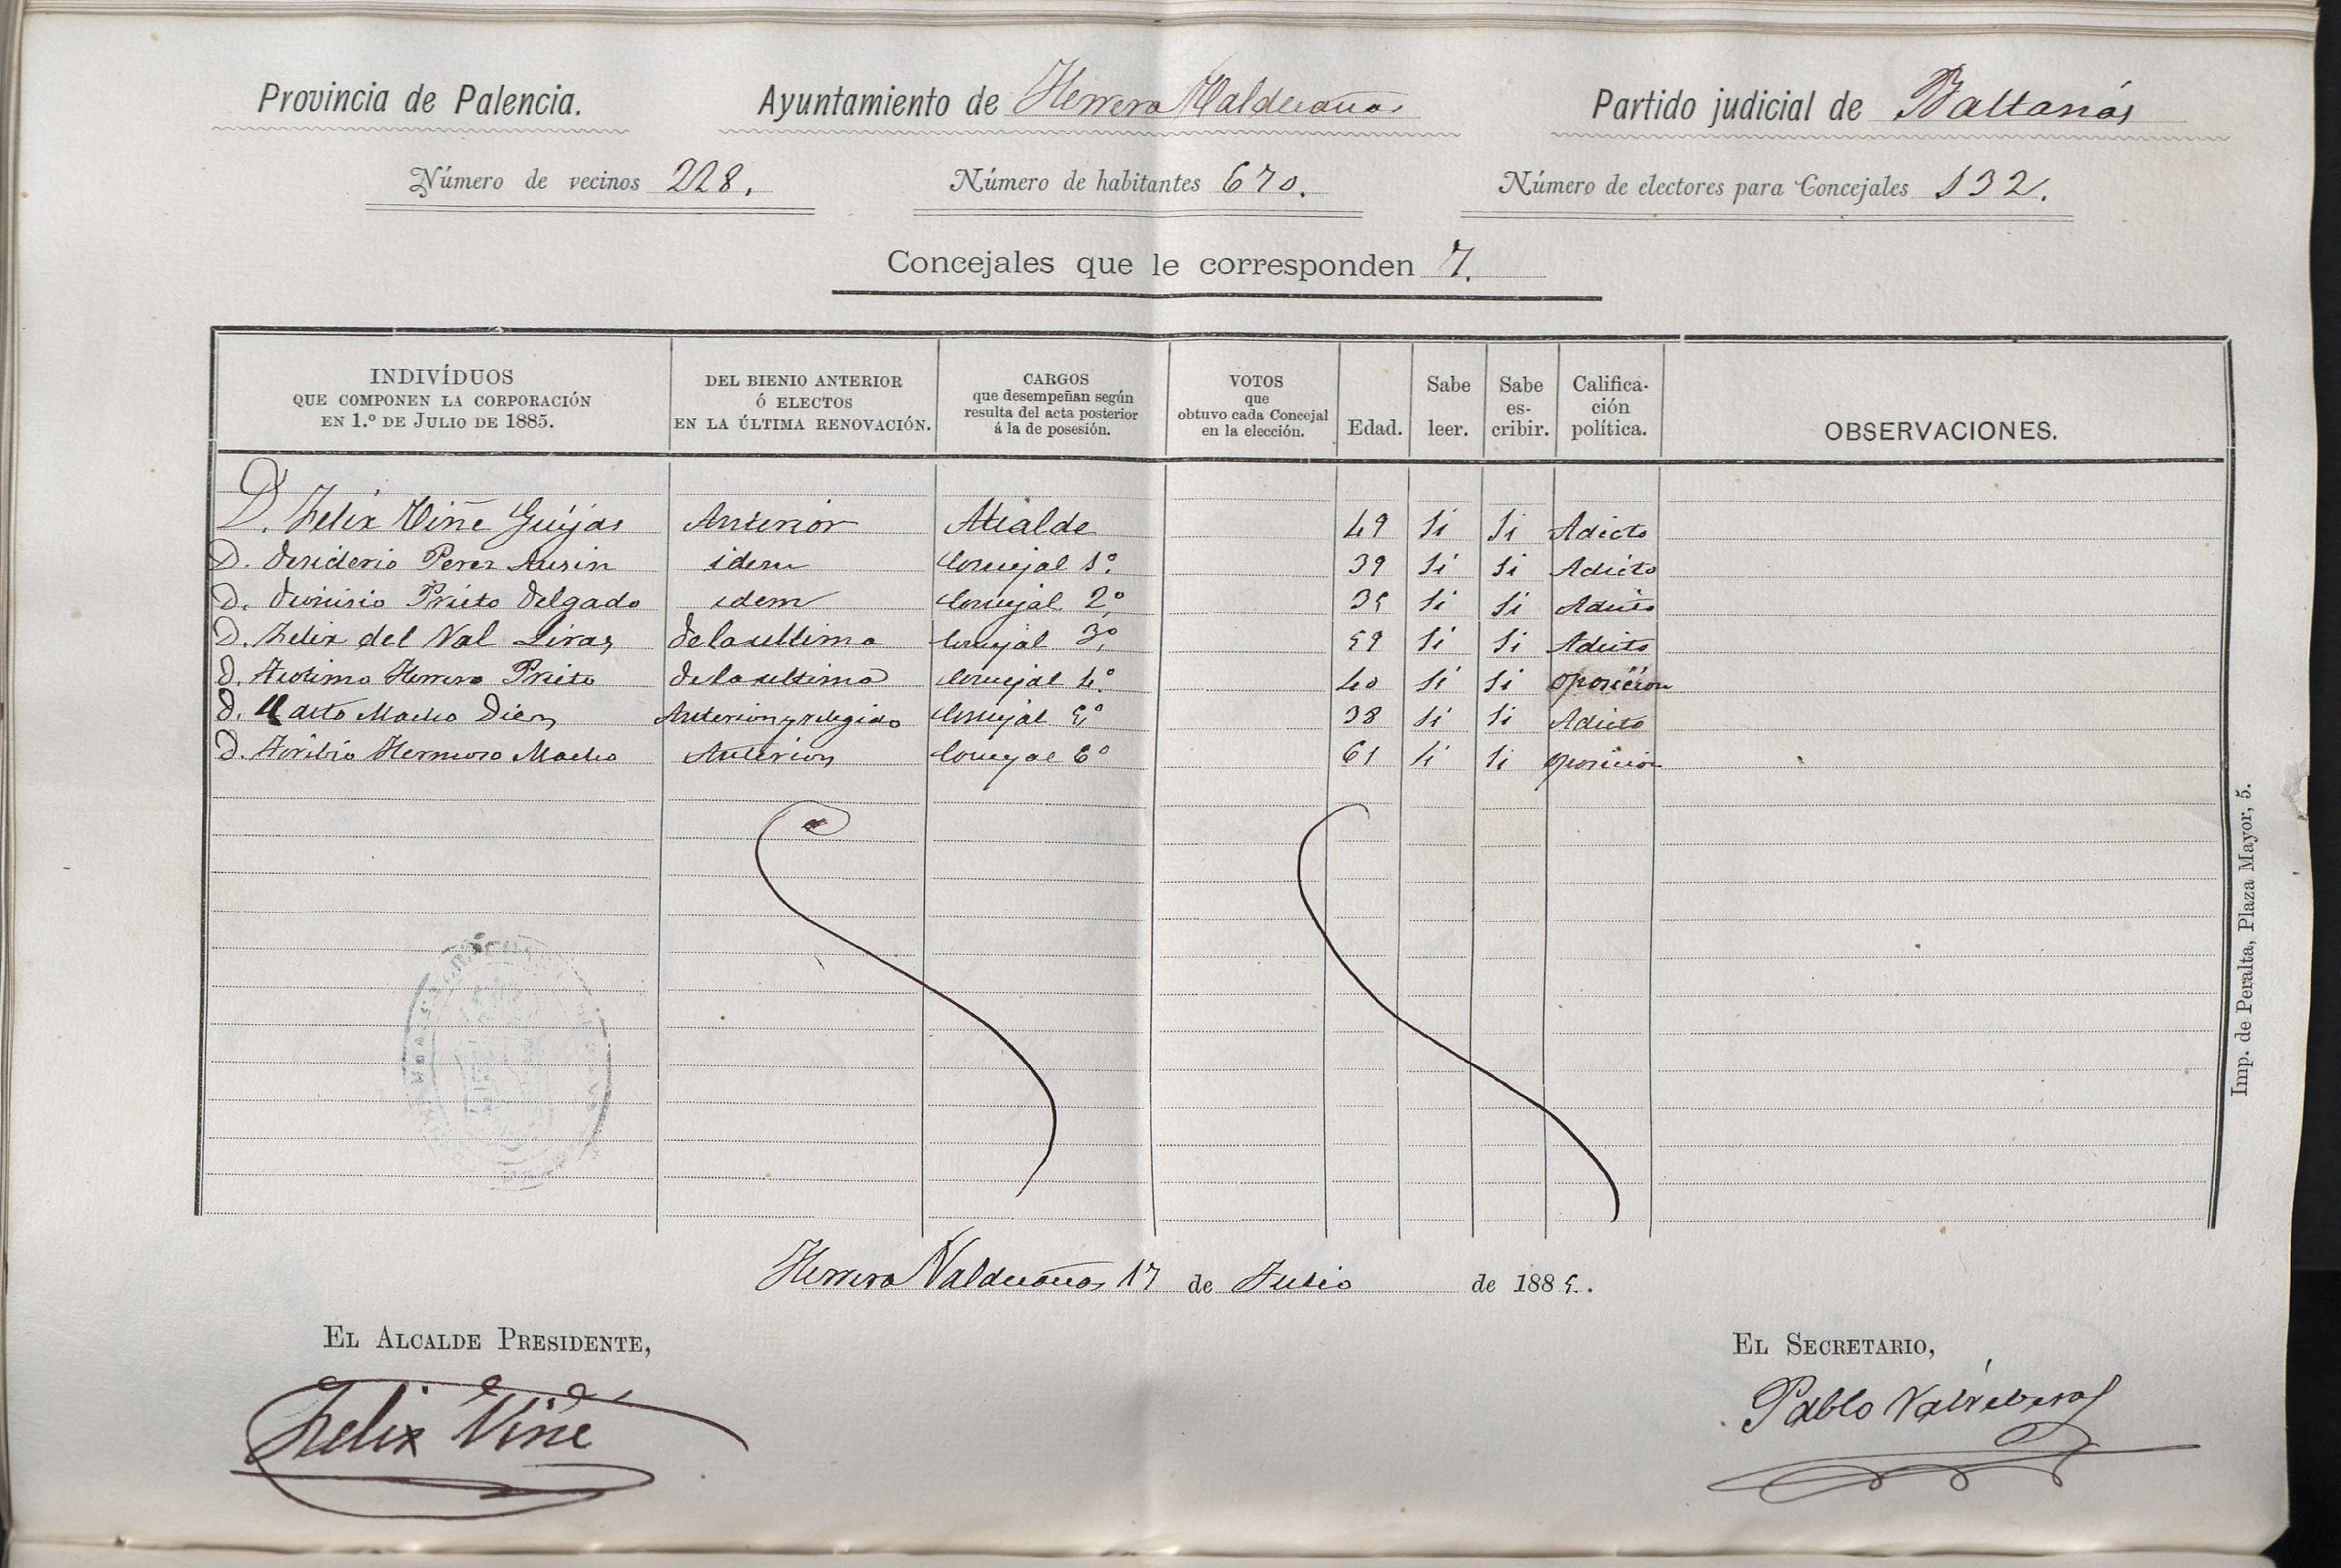 Provincia de Palencia. Ayuntamiento de Herrera Valdecañas Partido judicial de Baltanás
Número de vecinos 228. Número de habitantes 670. Número de electores para Concejales 132.
Concejales que le corresponden 7.
INDIVÍDUOS QUE COMPONEN LA CORPORACIÓN EN 1.º DE JULIO DE 1885. DEL BIENIO ANTERIOR Ó ELECTOS EN LA ÚLTIMA RENOVACIÓN. CARGOS que desempeñan según resulta del acta posterior á la de posesión. VOTOS que obtuvo cada Concejal en la elección. Edad. Sabe leer. Sabe es-cribir. Califica-ción política. OBSERVACIONES.
D. Felix Viñe Guijas Anterior Alcalde 49 Si Si Adicto
D. Desiderio Perez Ausin idem Concejal 1º. 39 Si Si Adicto
D. Dionisio Prieto Delgado idem Concejal 2º. 35 Si Si Adicto
D. Felix del Val Liras De la ultima Concejal 3º. 59 Si Si Adicto
D. Herrero Prieto De la ultima Concejal 4º. 40 Si Si oposicion
D. Macho Diez Anterior y relegido Concejal 5º. 38 Si Si Adicto
D. Toribio Hermoso Macho Anterior Concejal 6º 61 Si Si oposicion
Herrera Valdecañas 17 de Julio de 1885.
EL ALCALDE PRESIDENTE, EL SECRETARIO,
Felix Viñe Pablo
Imp. de Peralta, Plaza Mayor, 5.